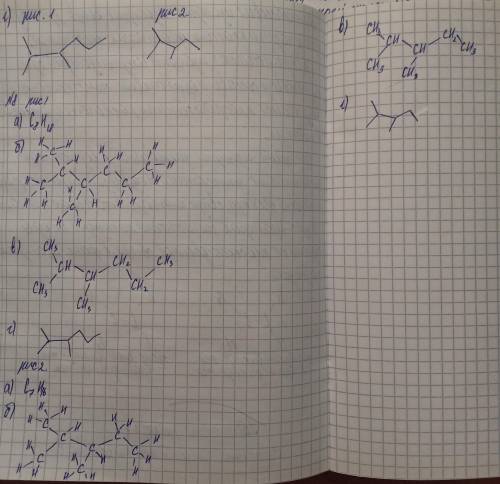 г) рис. 1 рис 2
№8 рис 1
а) C8H18
б)
H H H
C H H H H
H C C C H
H C C C H
H H H H H H
C
H H
в) CH3
CH CH2 CH3
CH3 CH CH2
CH3
г)
рис 2
а) C7H16
б) H H
H C H H H
C C H
H C C C H
H H C H H
H H
в) CH3
CH CH2
CH3 CH CH3
CH3
г)